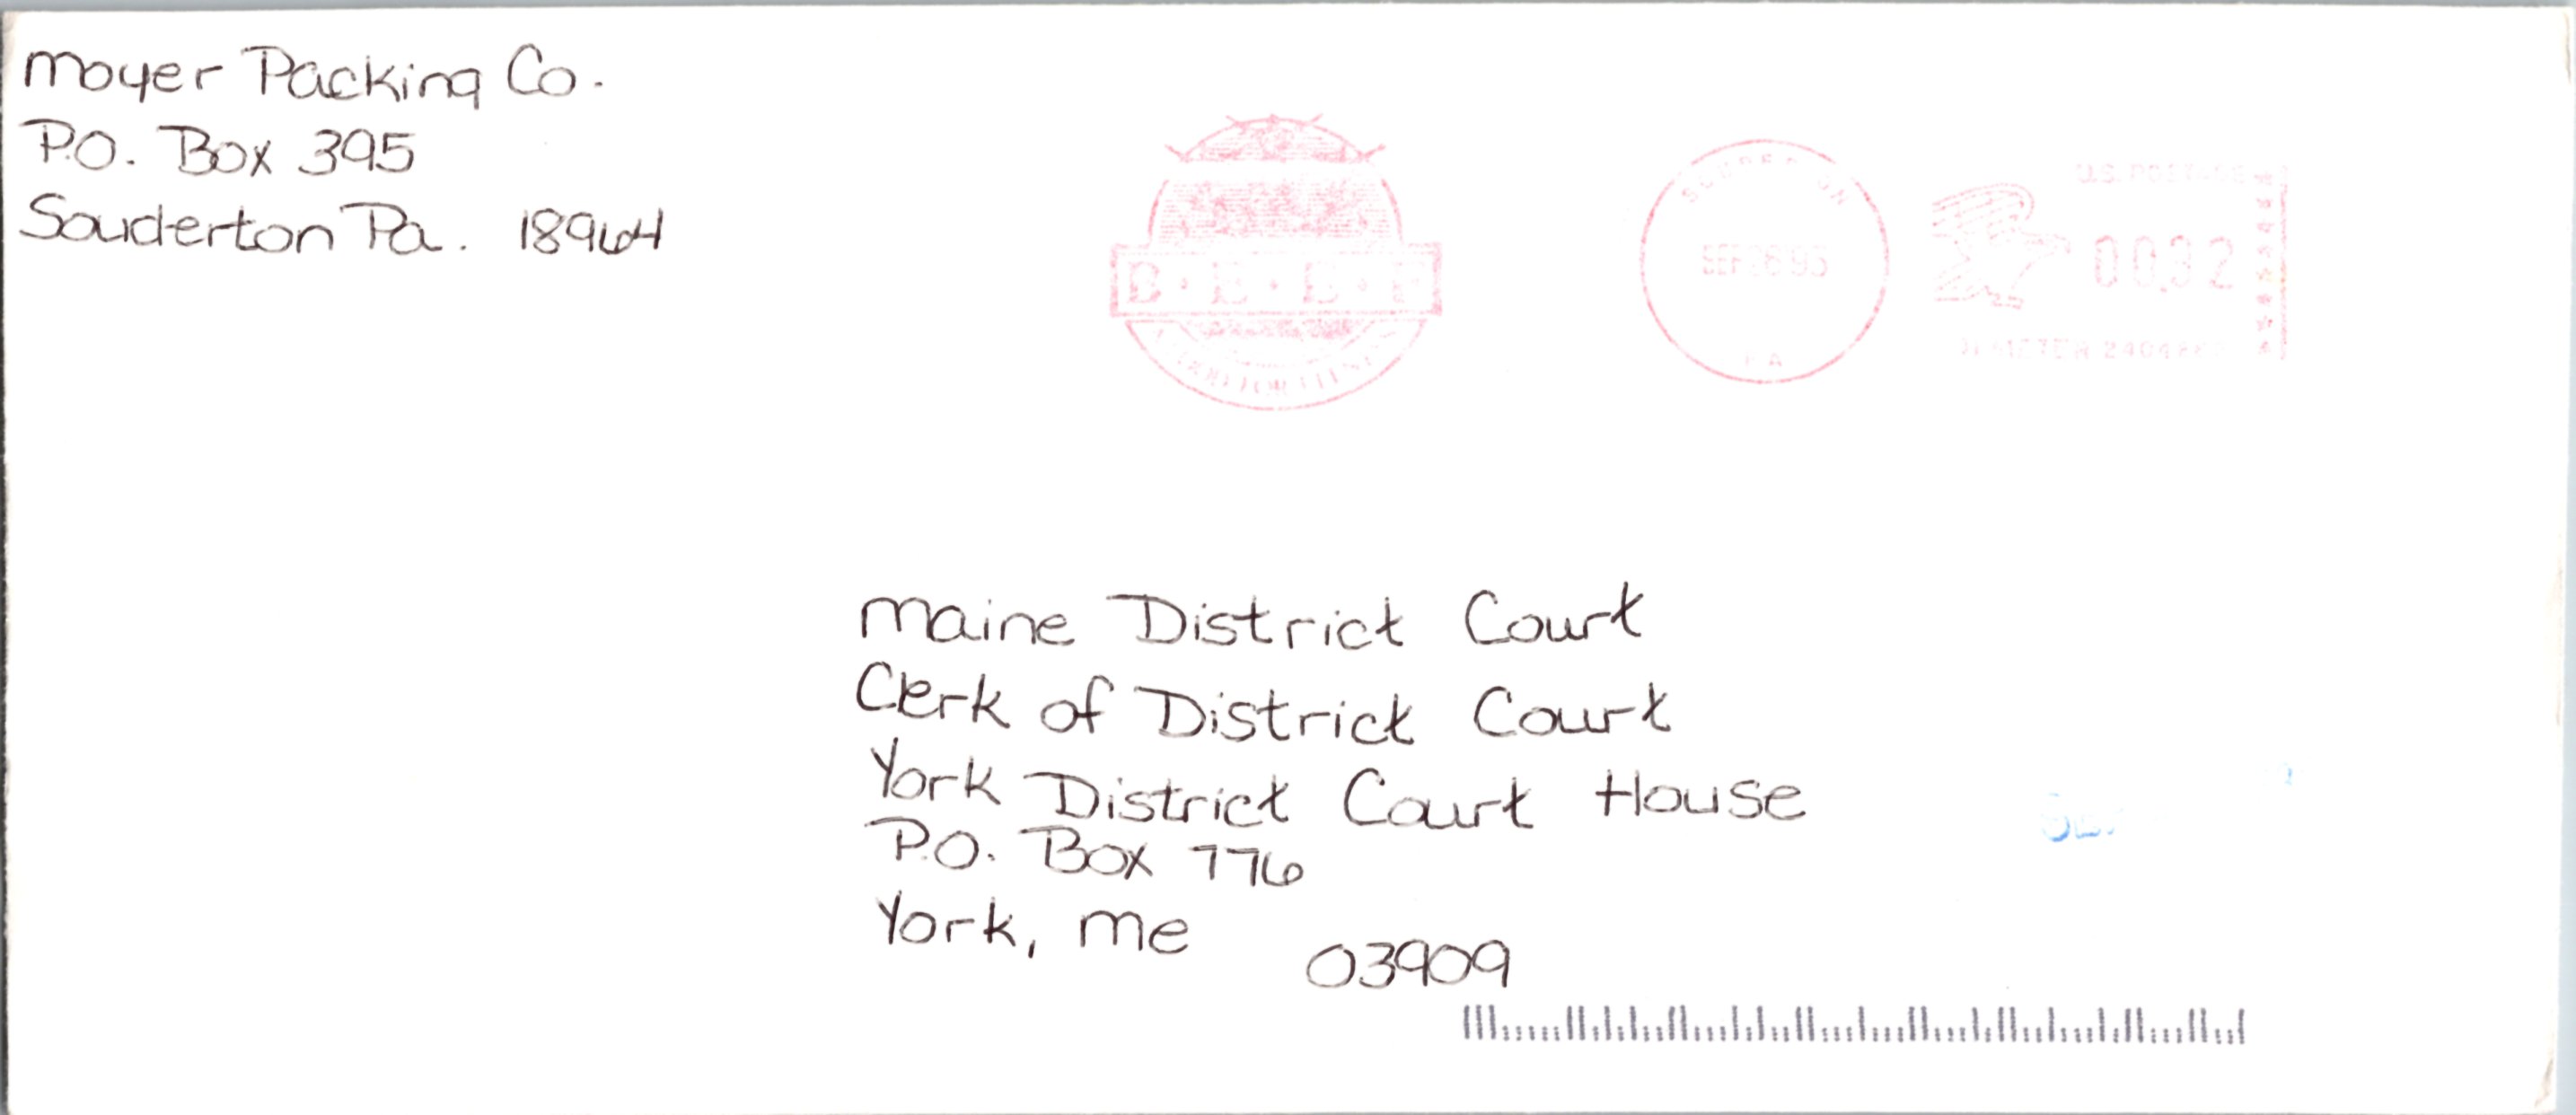 Moyer Packing Co.
P.O. Box 395
Souderton Pa. 18964
B·E·E·F
SOUDERTON
SEP 26 95
PA
U.S. POSTAGE
00.32
METER
Maine District Court
Clerk of District Court
York District Court House
P.O. Box 776
York, Me
03909